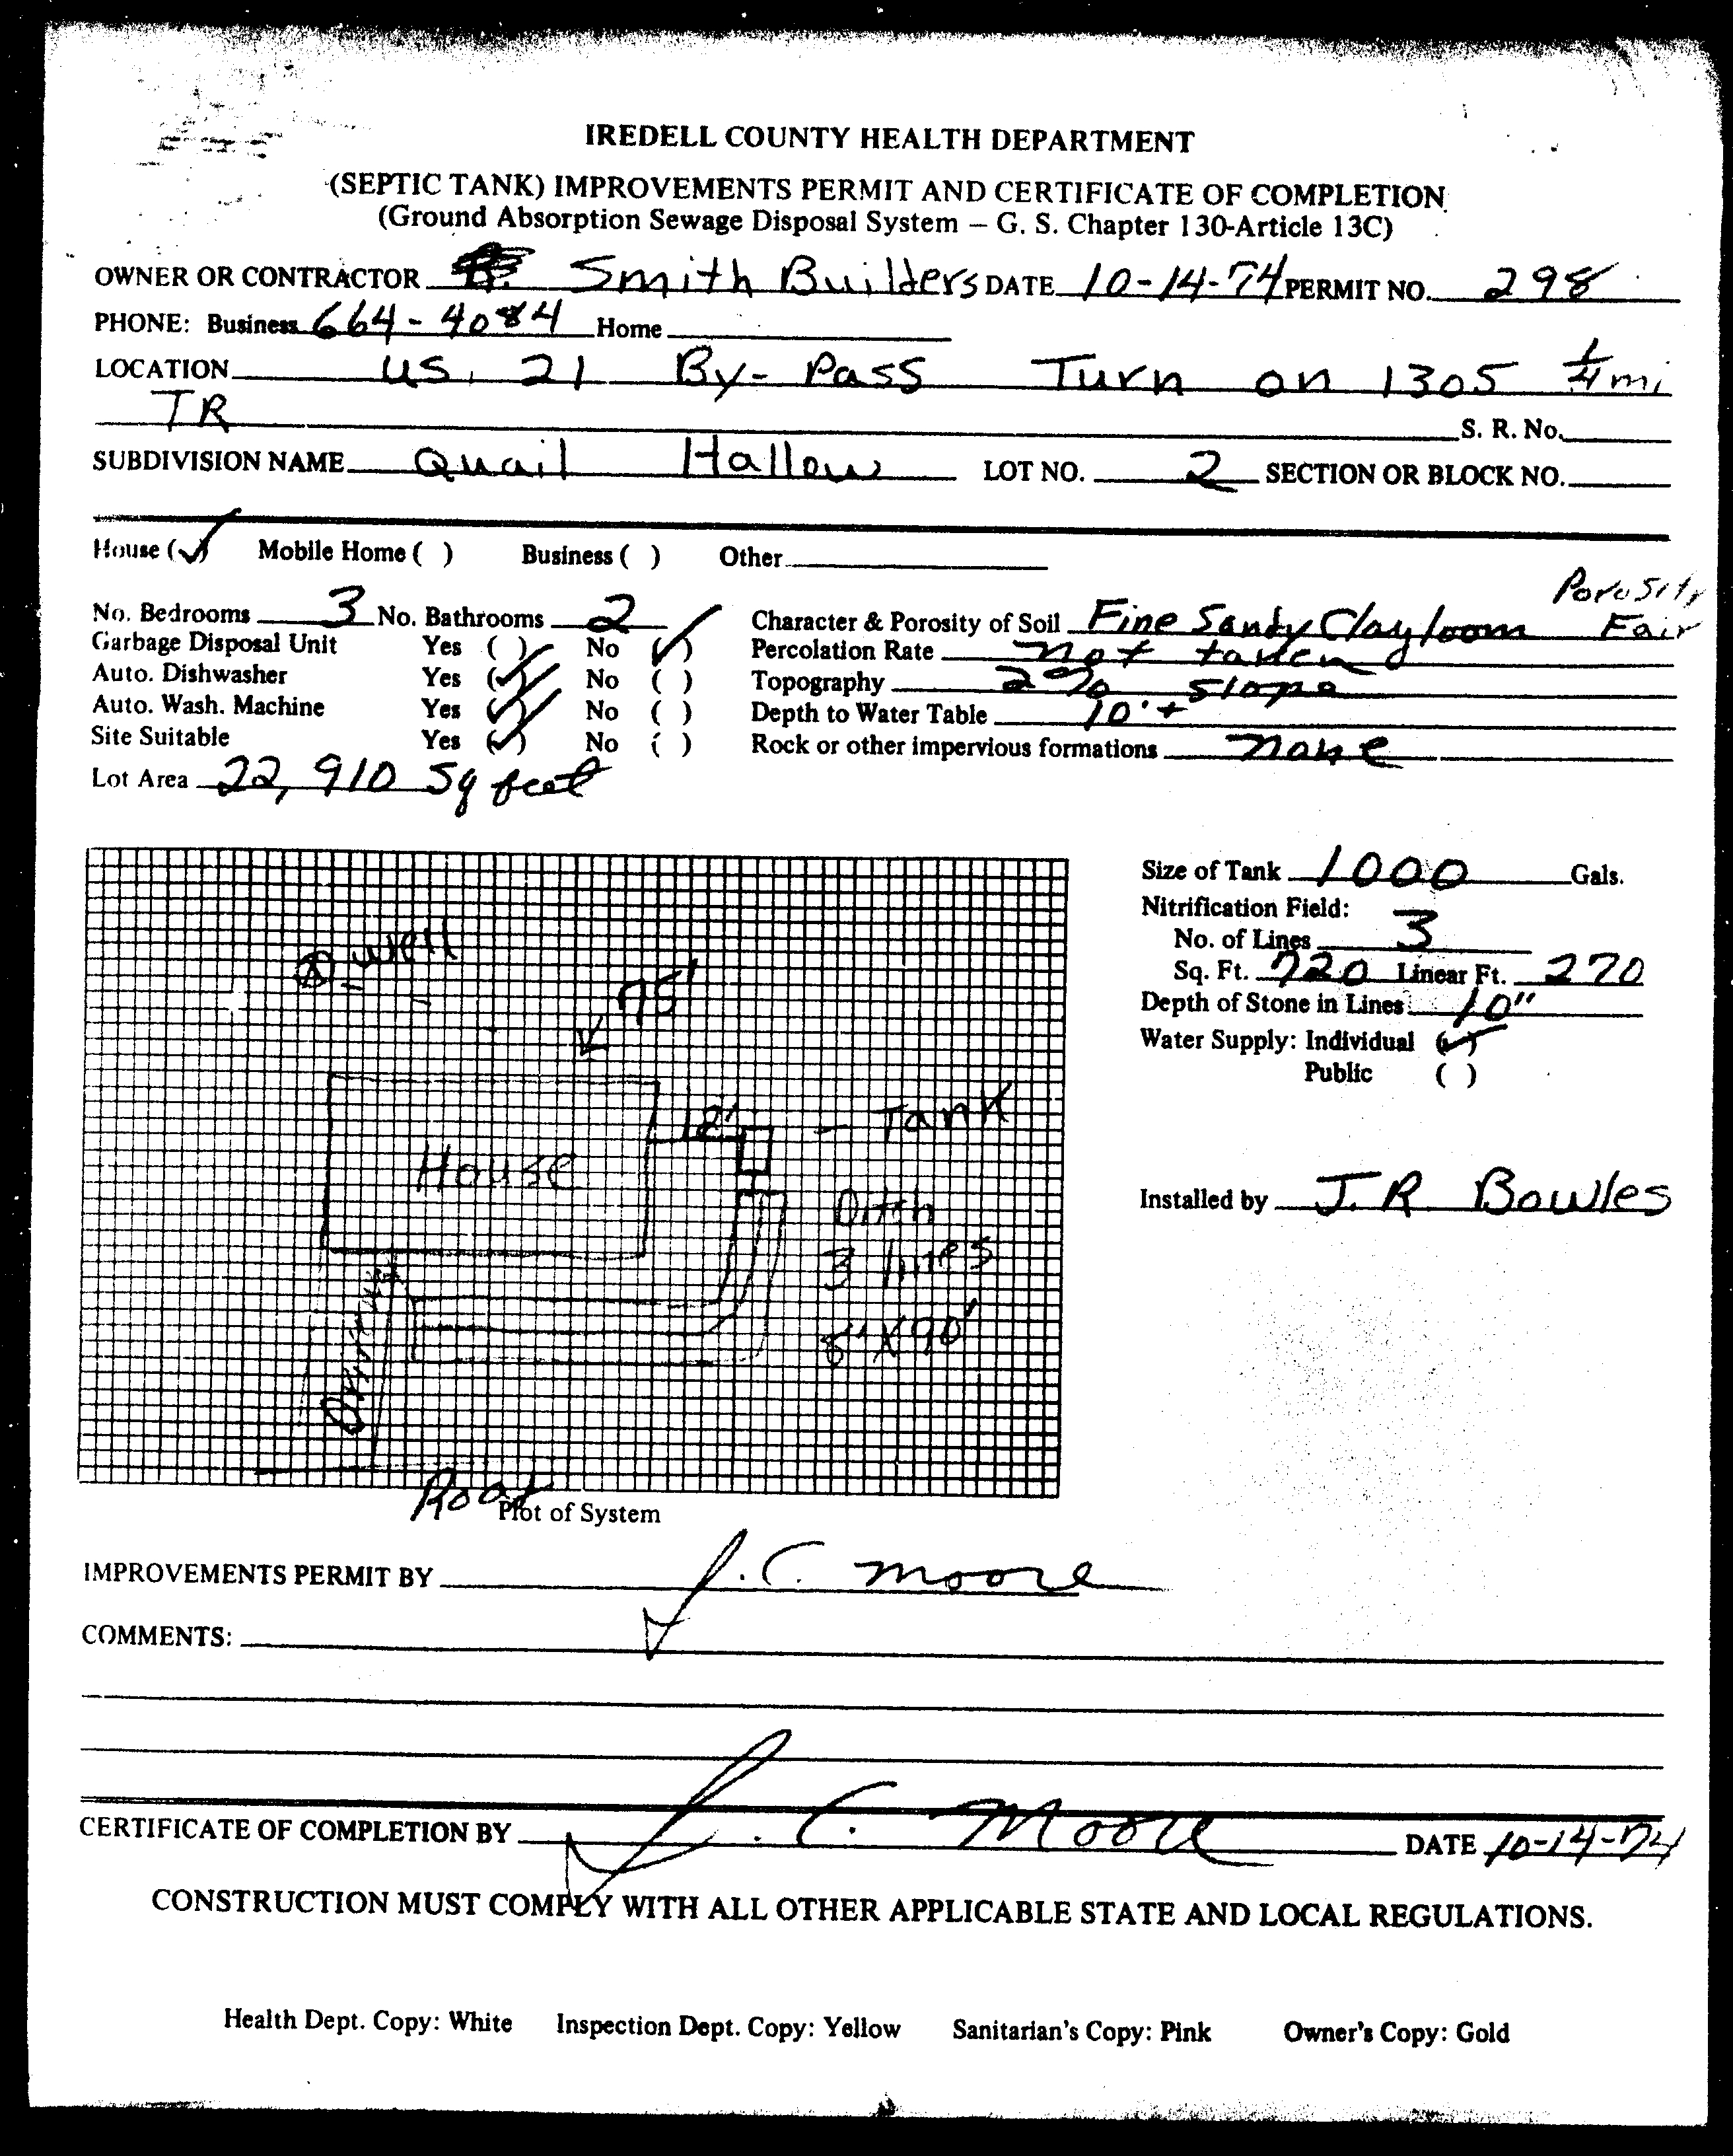 IREDELL COUNTY HEALTH DEPARTMENT
(SEPTIC TANK) IMPROVEMENTS PERMIT AND CERTIFICATE OF COMPLETION
(Ground Absorption Sewage Disposal System – G. S. Chapter 130-Article 13C)
OWNER OR CONTRACTOR Smith Builders DATE 10-14-74 PERMIT NO. 298
PHONE: Business 664-4084 Home
LOCATION US. 21 By-Pass Turn on 1305 1/4 mi
TR S. R. No.
SUBDIVISION NAME Quail Hallow LOT NO. 2 SECTION OR BLOCK NO.
House (✓) Mobile Home ( ) Business ( ) Other
Porosity
No. Bedrooms 3 No. Bathrooms 2 Character & Porosity of Soil Fine Sandy Clay loom Fair
Garbage Disposal Unit Yes ( ) No (✓) Percolation Rate not taken
Auto. Dishwasher Yes (✓) No ( ) Topography 2% slope
Auto. Wash. Machine Yes (✓) No ( ) Depth to Water Table 10'+
Site Suitable Yes (✓) No ( ) Rock or other impervious formations none
Lot Area 22,910 Sq feet
Size of Tank 1000 Gals.
Nitrification Field:
No. of Lines 3
Sq. Ft. 720 Linear Ft. 270
Depth of Stone in Lines 10"
Water Supply: Individual (✓)
Public ( )
Installed by J.R. Bowles
well
75'
12' - Tank
House
Ditch
3 lines
8" X 90'
Driveway
Road
Plot of System
IMPROVEMENTS PERMIT BY J. C. Moore
COMMENTS:
CERTIFICATE OF COMPLETION BY J. C. Moore DATE 10-14-74
CONSTRUCTION MUST COMPLY WITH ALL OTHER APPLICABLE STATE AND LOCAL REGULATIONS.
Health Dept. Copy: White Inspection Dept. Copy: Yellow Sanitarian's Copy: Pink Owner's Copy: Gold